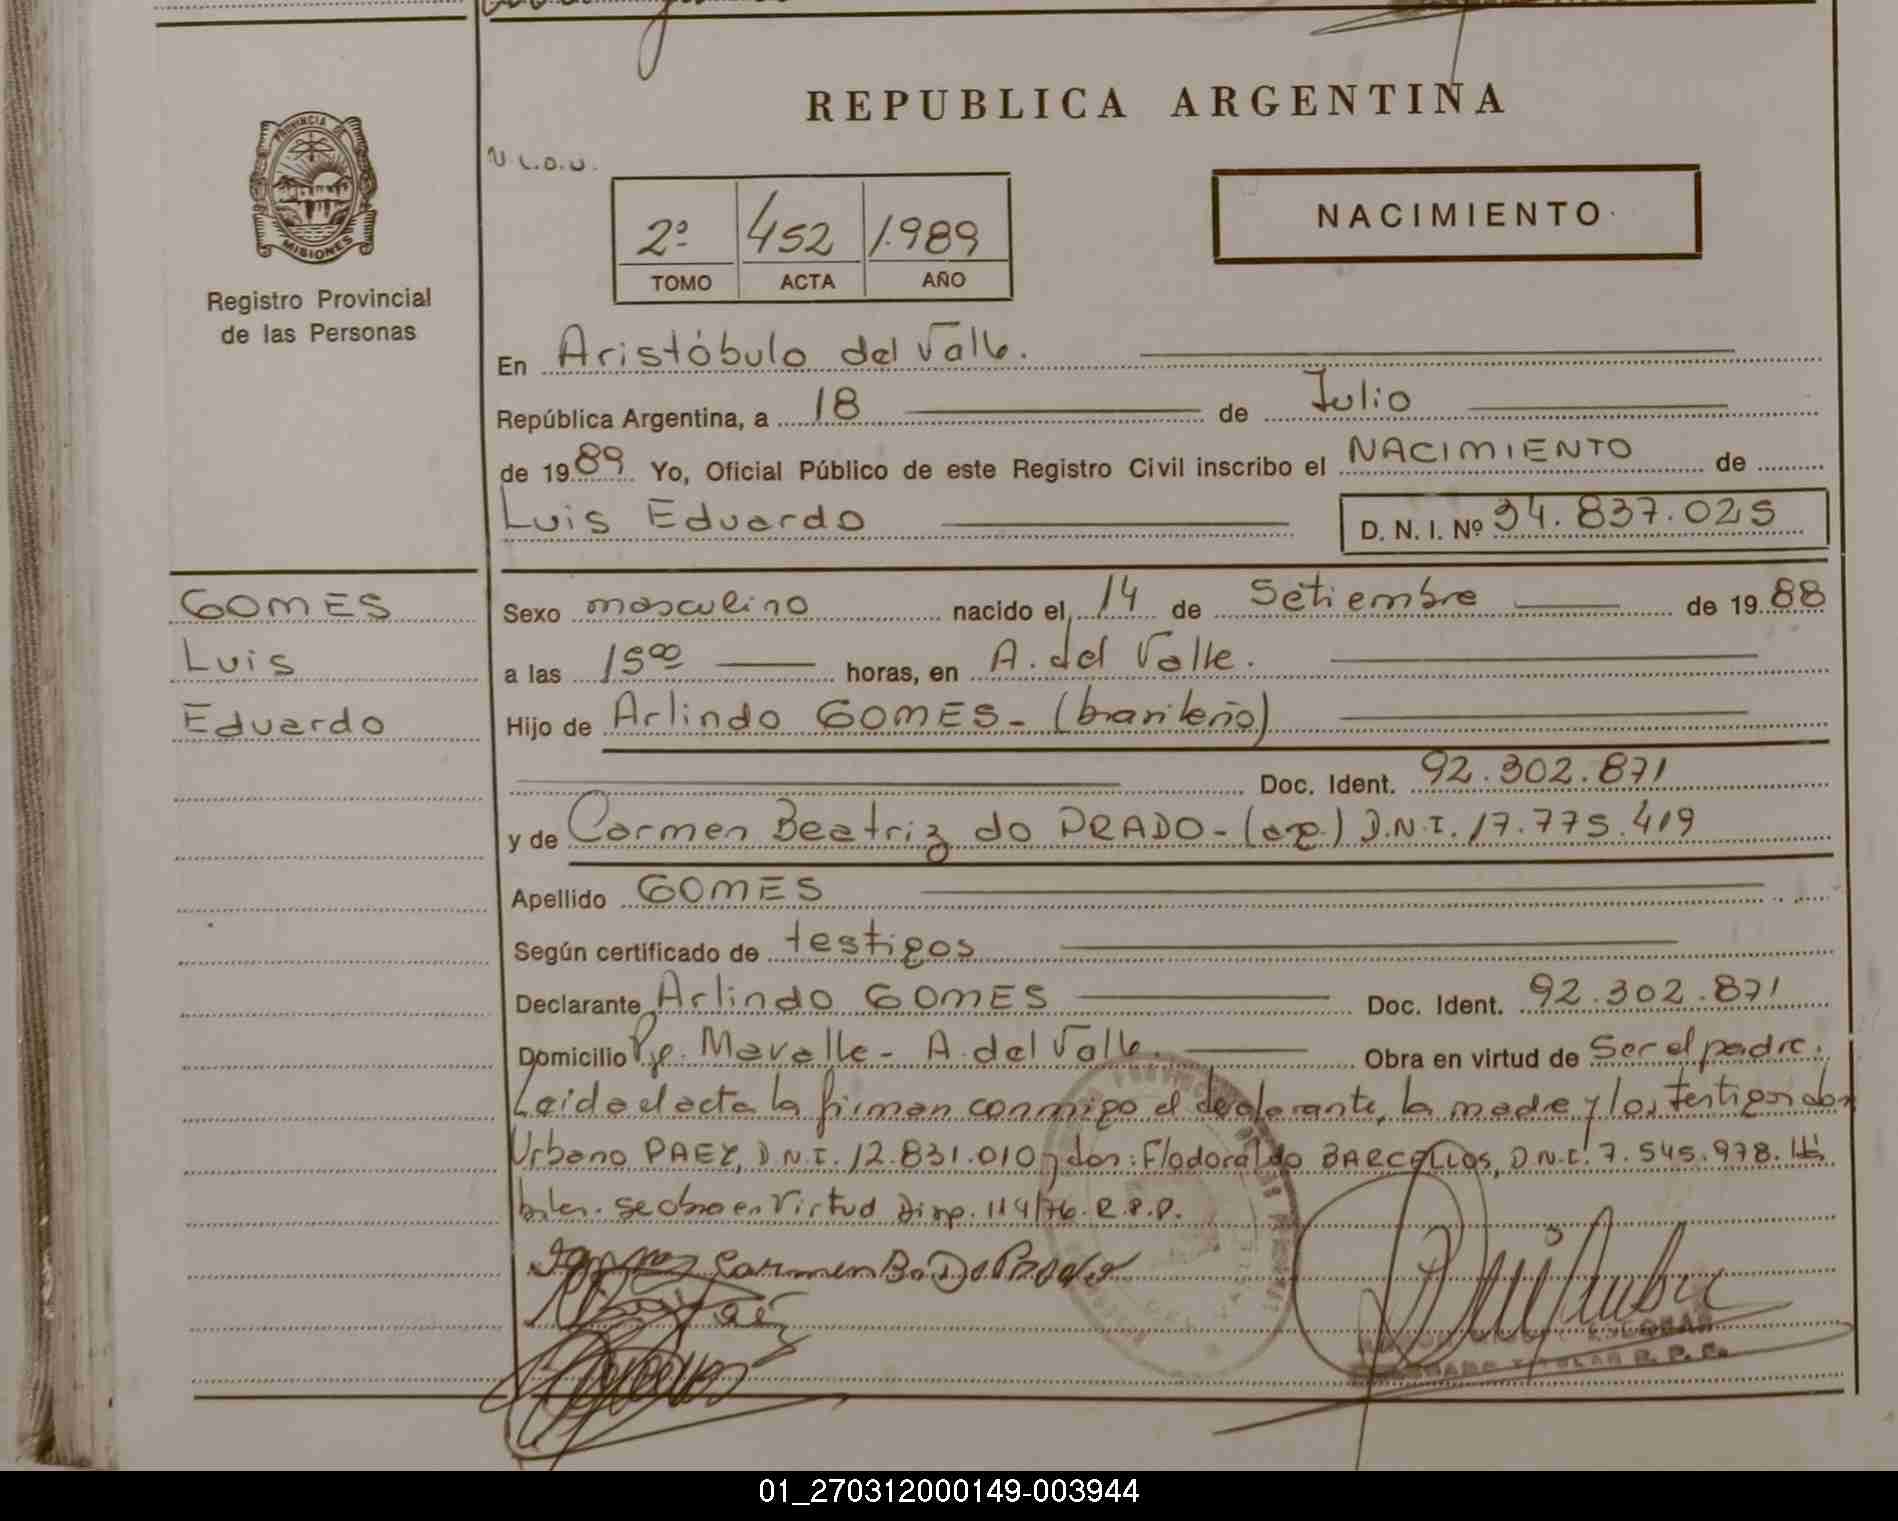 REPUBLICA ARGENTINA
PROVINCIA DE
MISIONES
Registro Provincial
de las Personas
N.L.O.U.
2º 452 1.989
TOMO ACTA AÑO
NACIMIENTO
En Aristóbulo del Valle.
República Argentina, a 18 de Julio
de 1989 Yo, Oficial Público de este Registro Civil inscribo el NACIMIENTO de
Luis Eduardo D. N. I. Nº 34.837.025
GOMES
Luis
Eduardo
Sexo masculino nacido el 14 de Setiembre de 1988
a las 15 00 horas, en A. del Valle.
Hijo de Arlindo GOMES - (brasileño)
Doc. Ident. 92.302.871
y de Carmen Beatriz do PRADO - (arg.) D.N.I. 17.775.419
Apellido GOMES
Según certificado de testigos
Declarante Arlindo GOMES Doc. Ident. 92.302.871
Domicilio Pje. Mavalle - A. del Valle. Obra en virtud de Ser el padre.
Leida el acta la firman conmigo el declarante, la madre y los testigos don
Urbano PAEZ, D.N.I. 12.831.010 y don: Flodoraldo BARCELLOS, D.N.I. 7.545.978. Há
biles. se obro en Virtud Disp. 114/76. R.P.P.
Carmen B. Do Prado
TITULAR R. P. P.
01_270312000149-003944